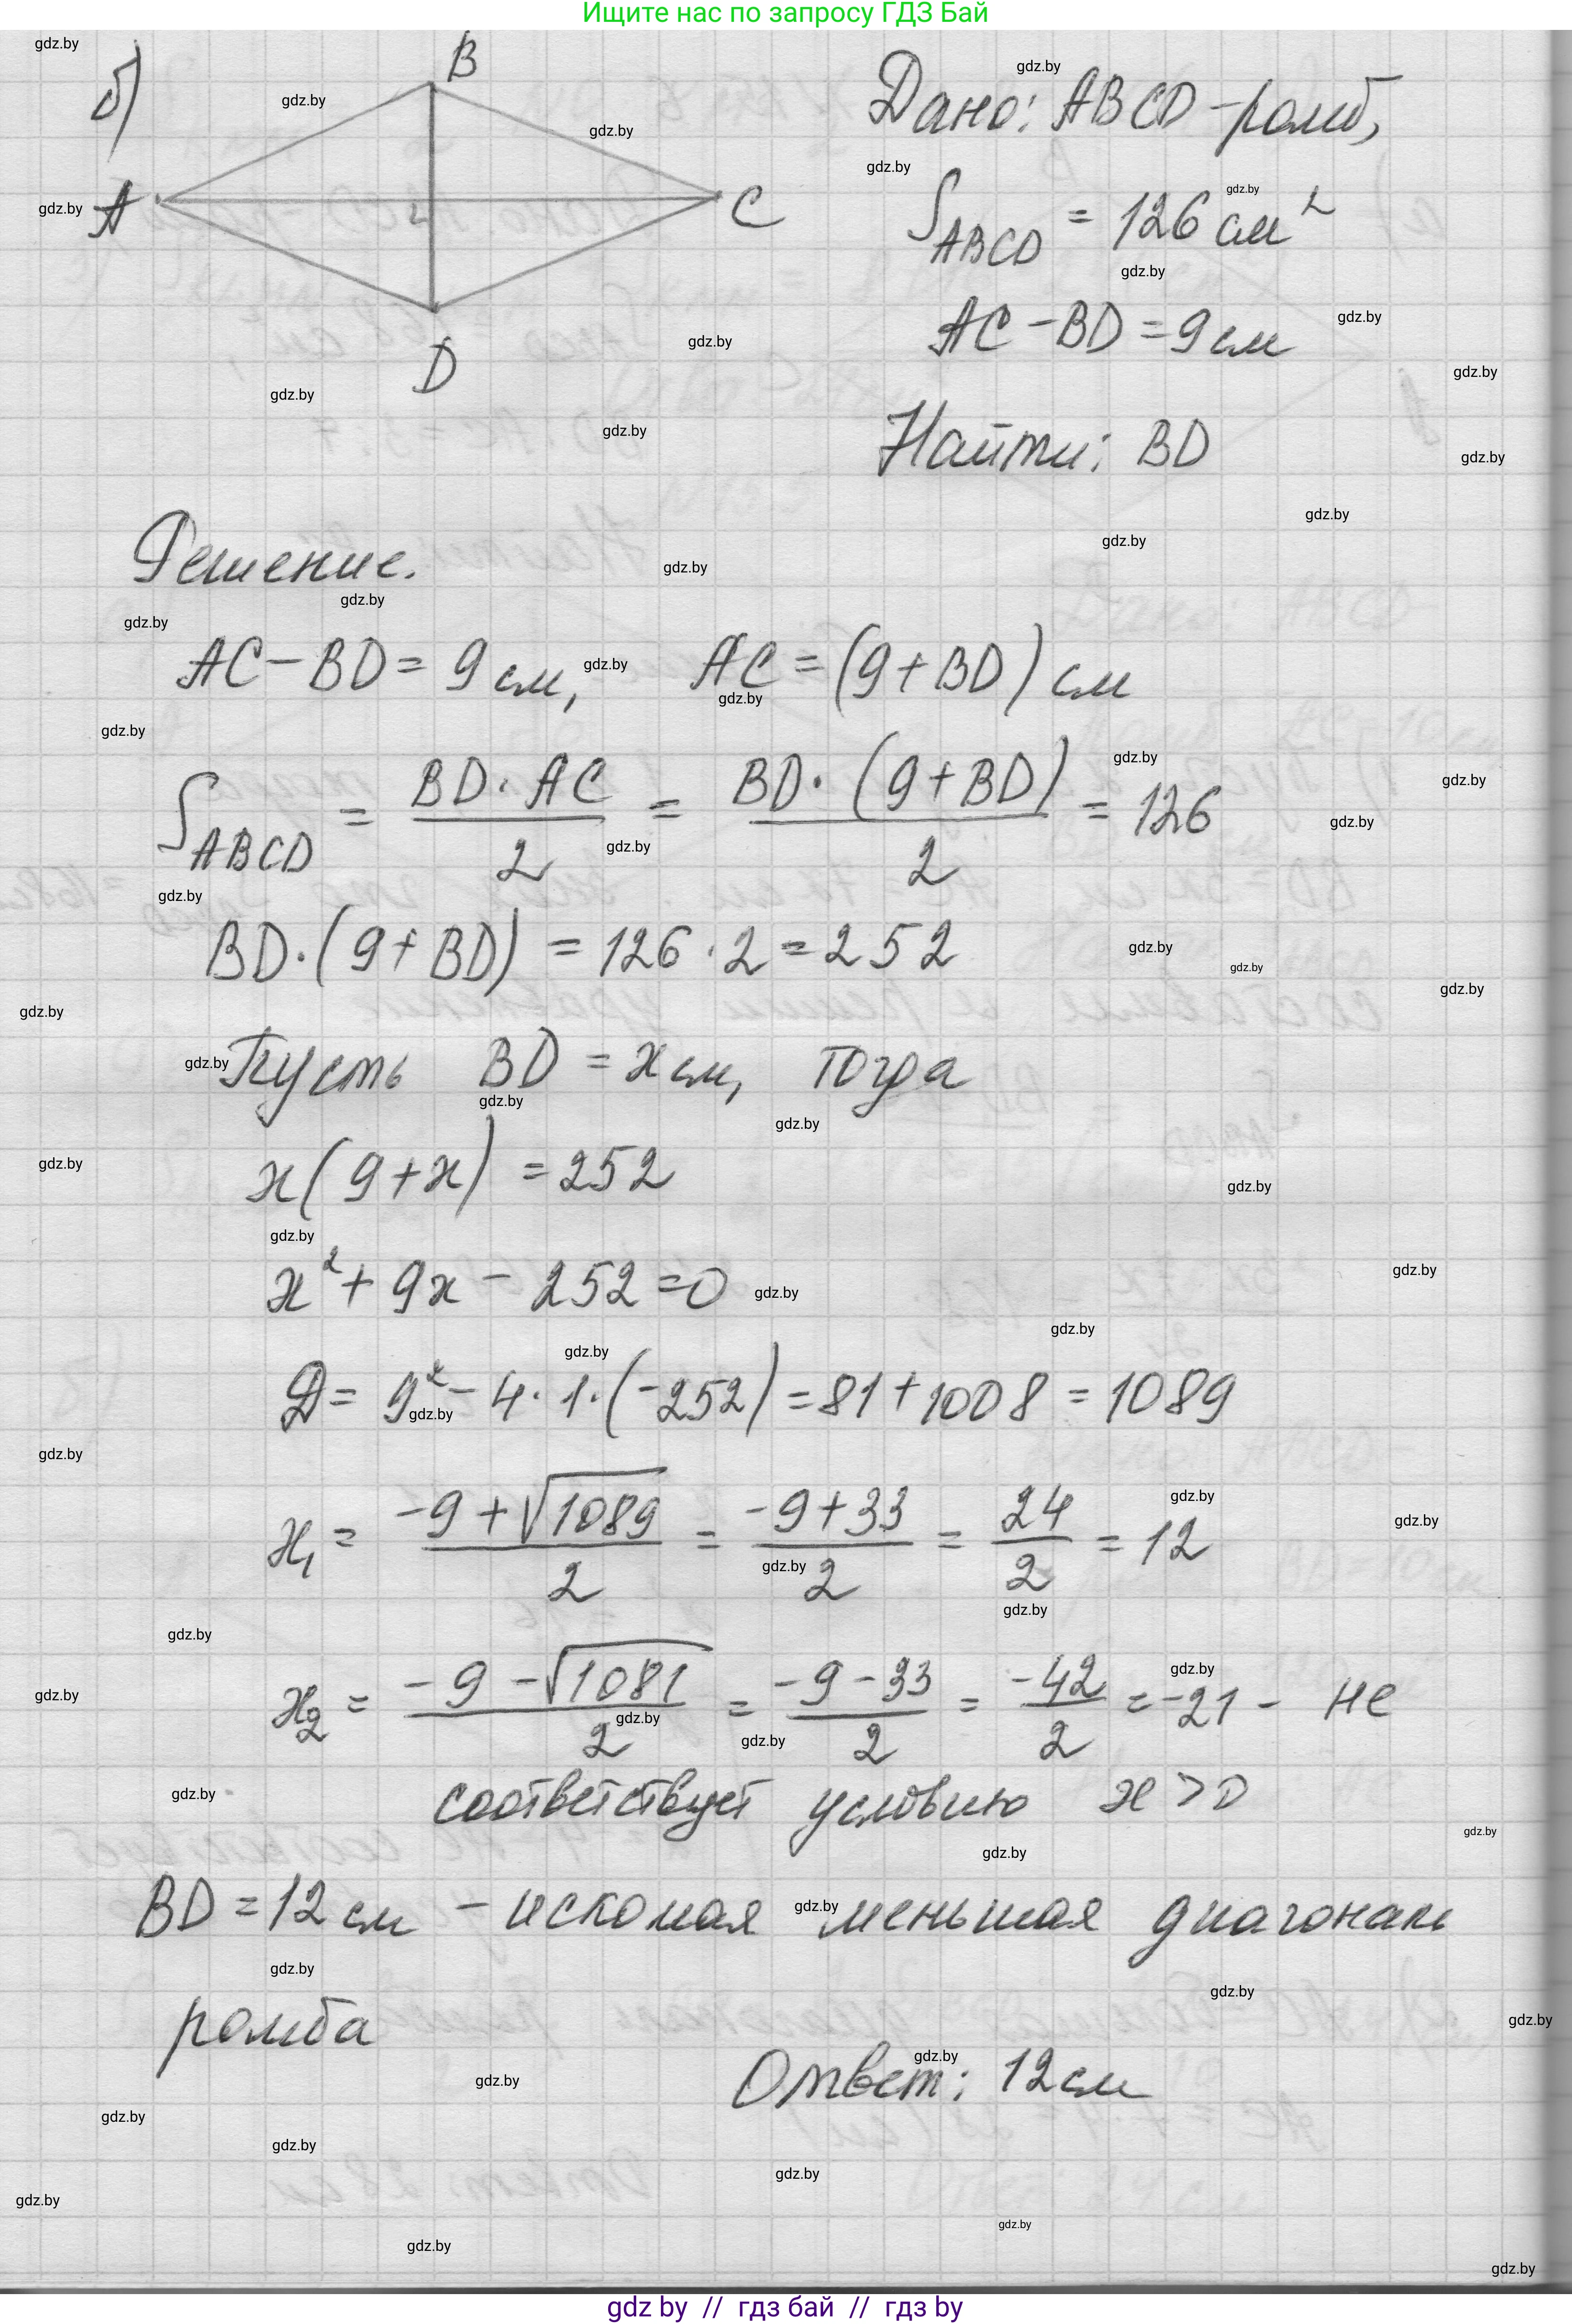 Ищите нас по запросу ГДЗ Бай
б)
B
A
C
D
Дано: ABCD - ромб,
S_ABCD = 126 см²
AC - BD = 9 см
Найти: BD
Решение.
AC - BD = 9 см, AC = (9 + BD) см
S_ABCD = BD · AC / 2 = BD · (9 + BD) / 2 = 126
BD · (9 + BD) = 126 · 2 = 252
Пусть BD = x см, тогда
x(9 + x) = 252
x² + 9x - 252 = 0
D = 9² - 4 · 1 · (-252) = 81 + 1008 = 1089
x₁ = -9 + √1089 / 2 = -9 + 33 / 2 = 24 / 2 = 12
x₂ = -9 - √1081 / 2 = -9 - 33 / 2 = -42 / 2 = -21 - не
соответствует условию x > 0
BD = 12 см - искомая меньшая диагональ
ромба
Ответ: 12 см
gdz by // гдз бай // гдз by